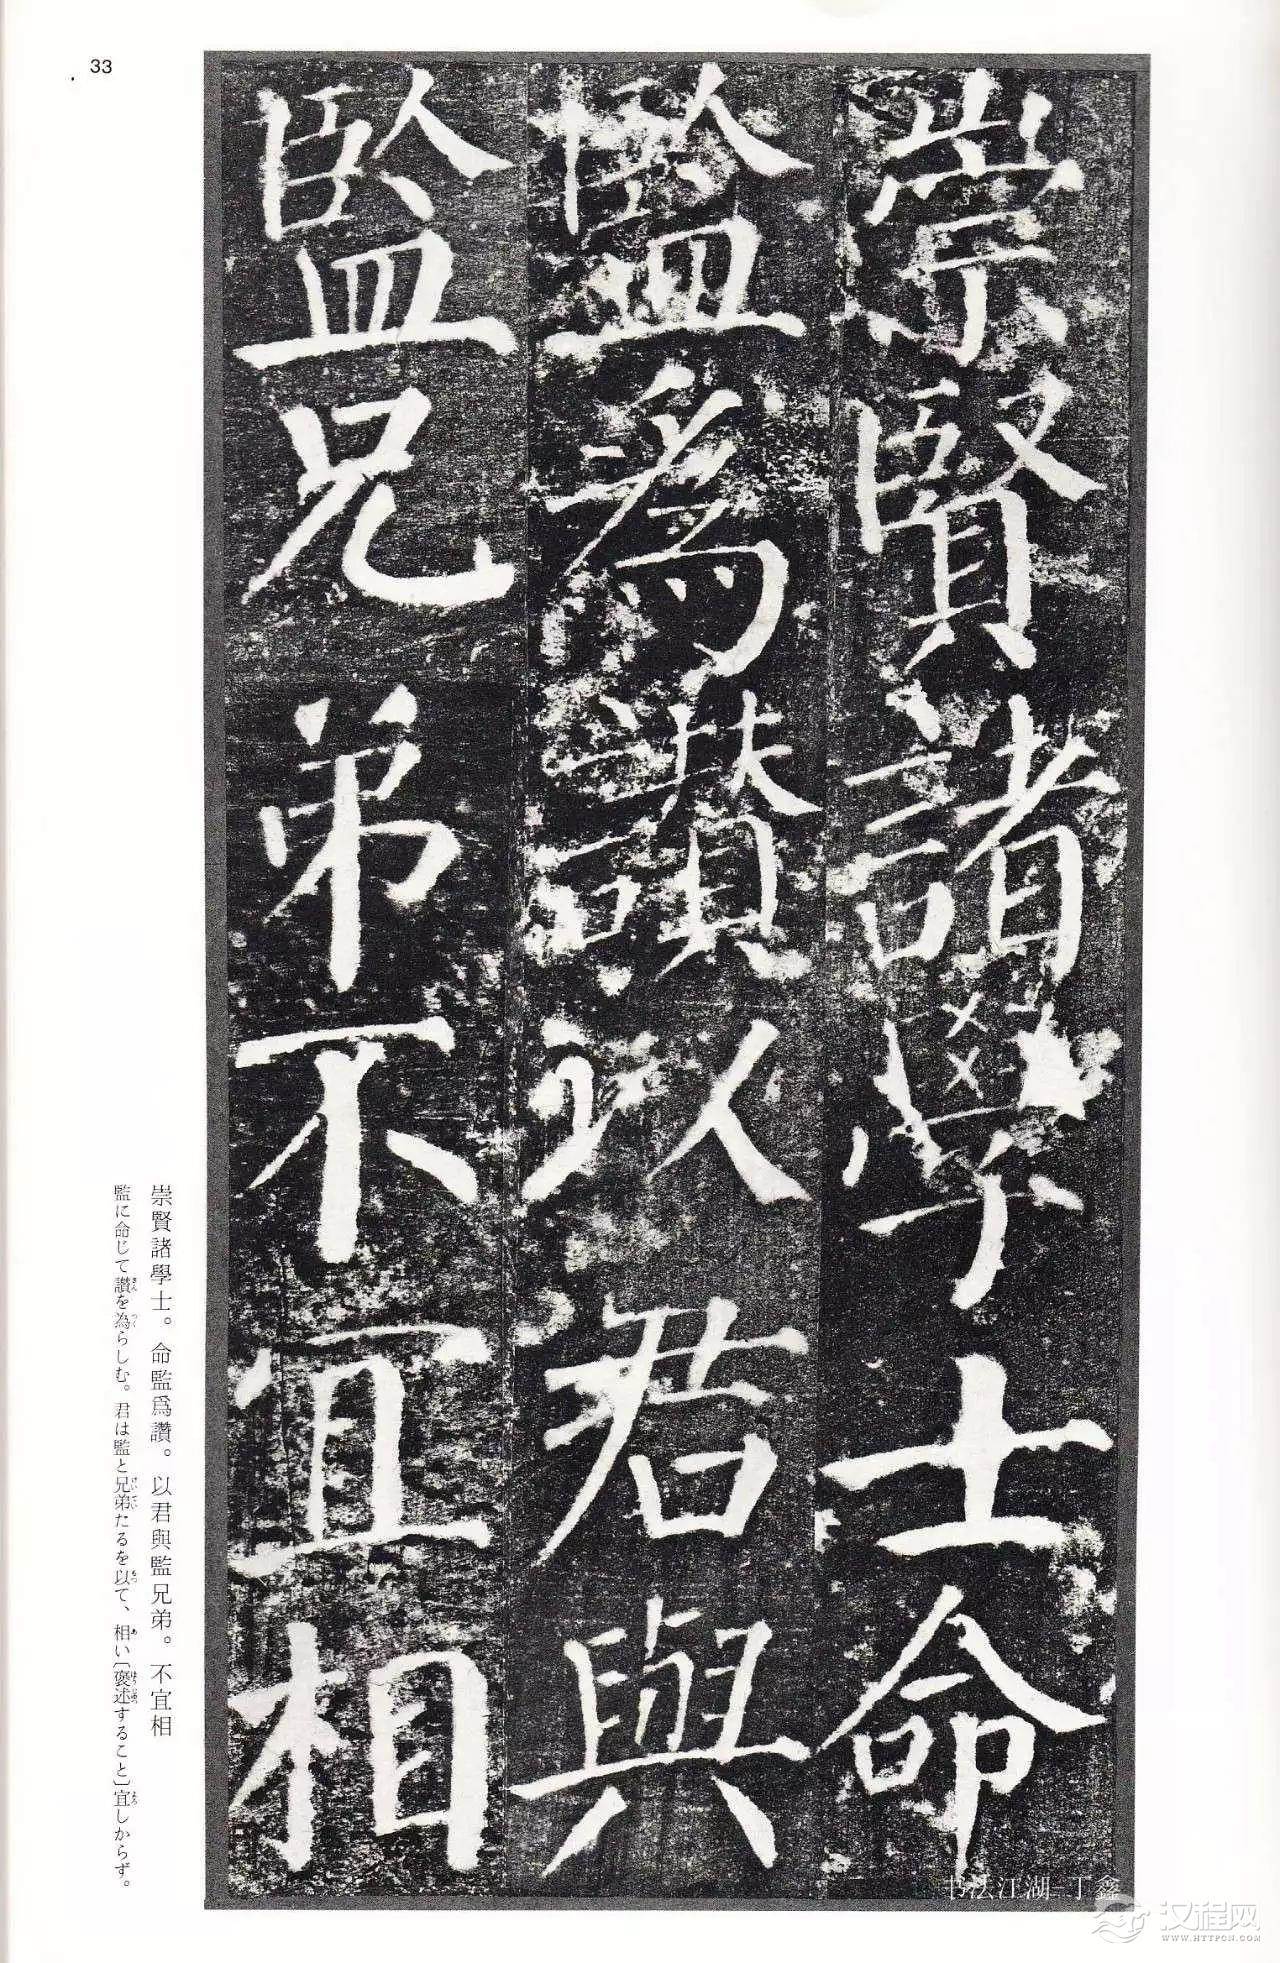 33
崇賢諸學士命
監為讃以君與
監兄弟不宜相
崇賢諸學士。命監爲讚。以君與監兄弟。不宜相
監に命じて讃を為らしむ。君は監と兄弟たるを以て、相い〔褒述すること〕宜しからず。
书法江湖-丁鑫
汉程网
WWW.HTTPCN.COM